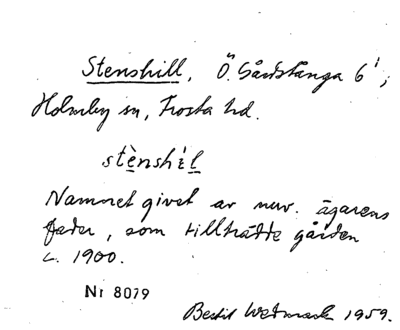 Stenshill, Ö. Gårdstånga 6¹;
Holmby sn, Frosta hd.
stènshíl
Namnet givet av nuv. ägarens
fader, som tillträdde gården
c. 1900.
Nr 8079
Bertil Wetmark 1959.